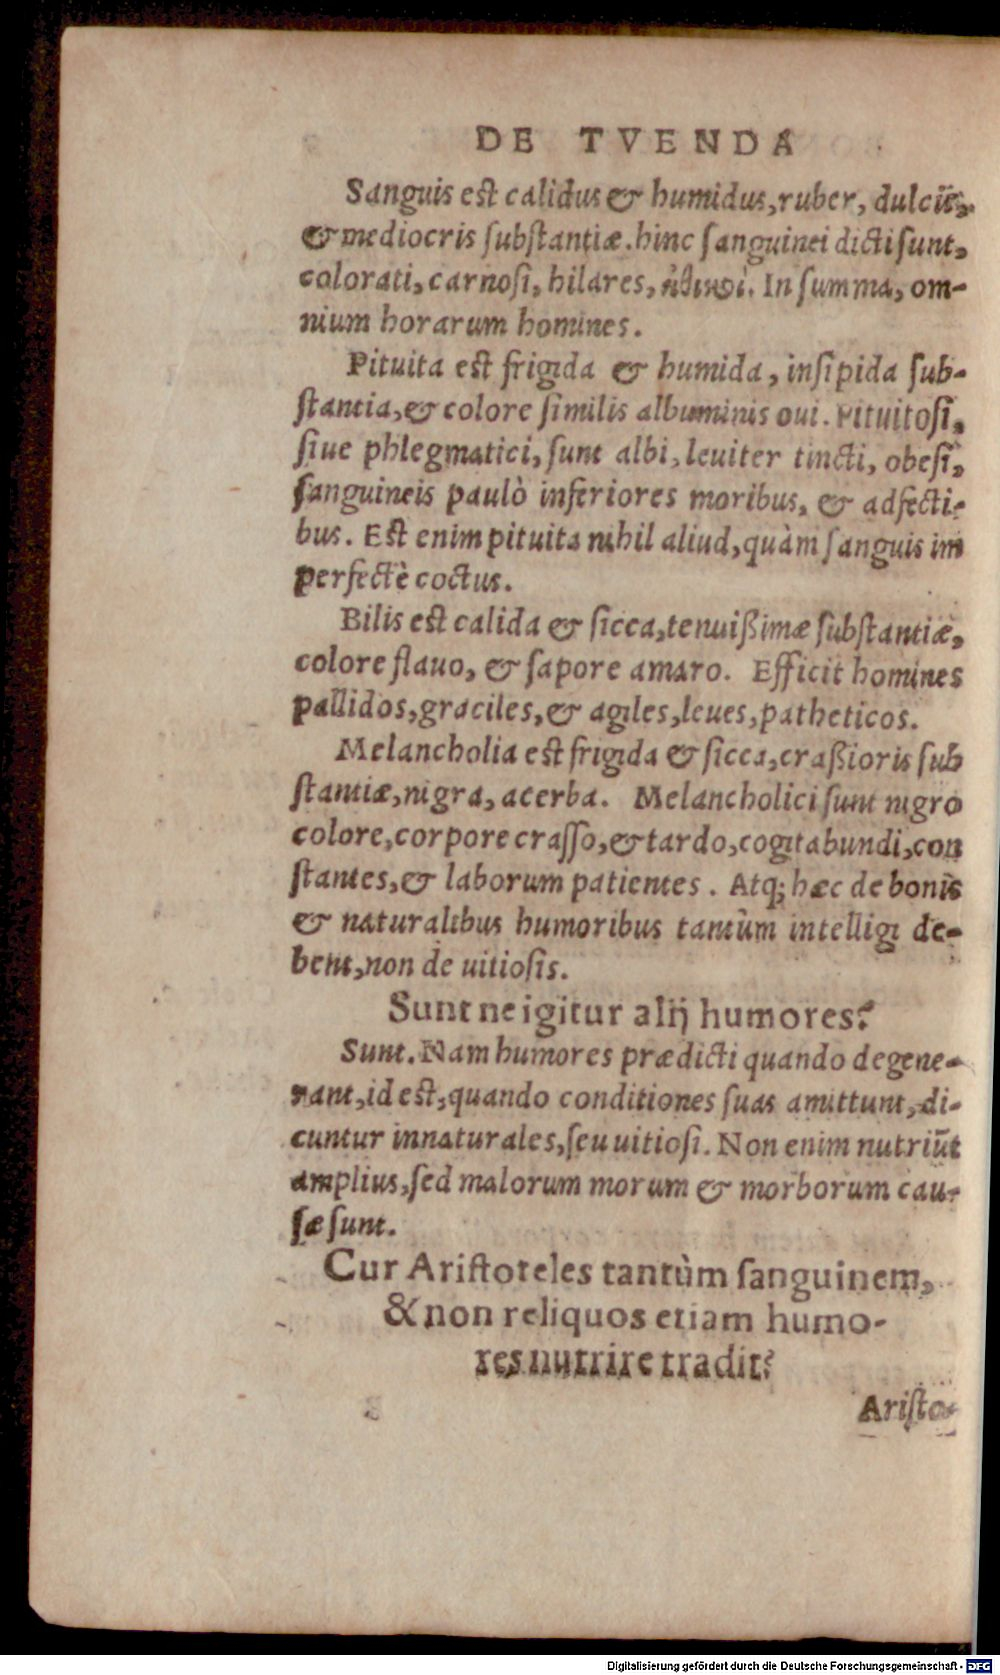 DE TVENDA
Sanguis est calidus & humidus, ruber, dulcis,
& mediocris substantiæ. hinc sanguinei dicti sunt,
colorati, carnosi, hilares, In summa, om-
nium horarum homines.
Pituita est frigida & humida, insipida sub-
stantia, & colore similis albuminis oui. Pituitosi,
siue phlegmatici, sunt albi, leuiter tincti, obesi,
sanguineis paulò inferiores moribus, & adfecti-
bus. Est enim pituita nihil aliud, quàm sanguis im
perfectè coctus.
Bilis est calida & sicca, tenuißimæ substantiæ,
colore flauo, & sapore amaro. Efficit homines
pallidos, graciles, & agiles, leues, patheticos.
Melancholia est frigida & sicca, craßioris sub
stantiæ, nigra, acerba. Melancholici sunt nigro
colore, corpore crasso, & tardo, cogitabundi, con
stantes, & laborum patientes. Atq; hæc de bonis
& naturalibus humoribus tantùm intelligi de-
bent, non de uitiosis.
Sunt ne igitur alij humores?
Sunt. Nam humores prædicti quando degene-
rant, id est, quando conditiones suas amittunt, di-
cuntur innaturales, seu uitiosi. Non enim nutriũt
amplius, sed malorum morum & morborum cau-
sæ sunt.
Cur Aristoteles tantùm sanguinem,
& non reliquos etiam humo-
res nutrire tradit?
Aristo-
Digitalisierung gefördert durch die Deutsche Forschungsgemeinschaft - DFG